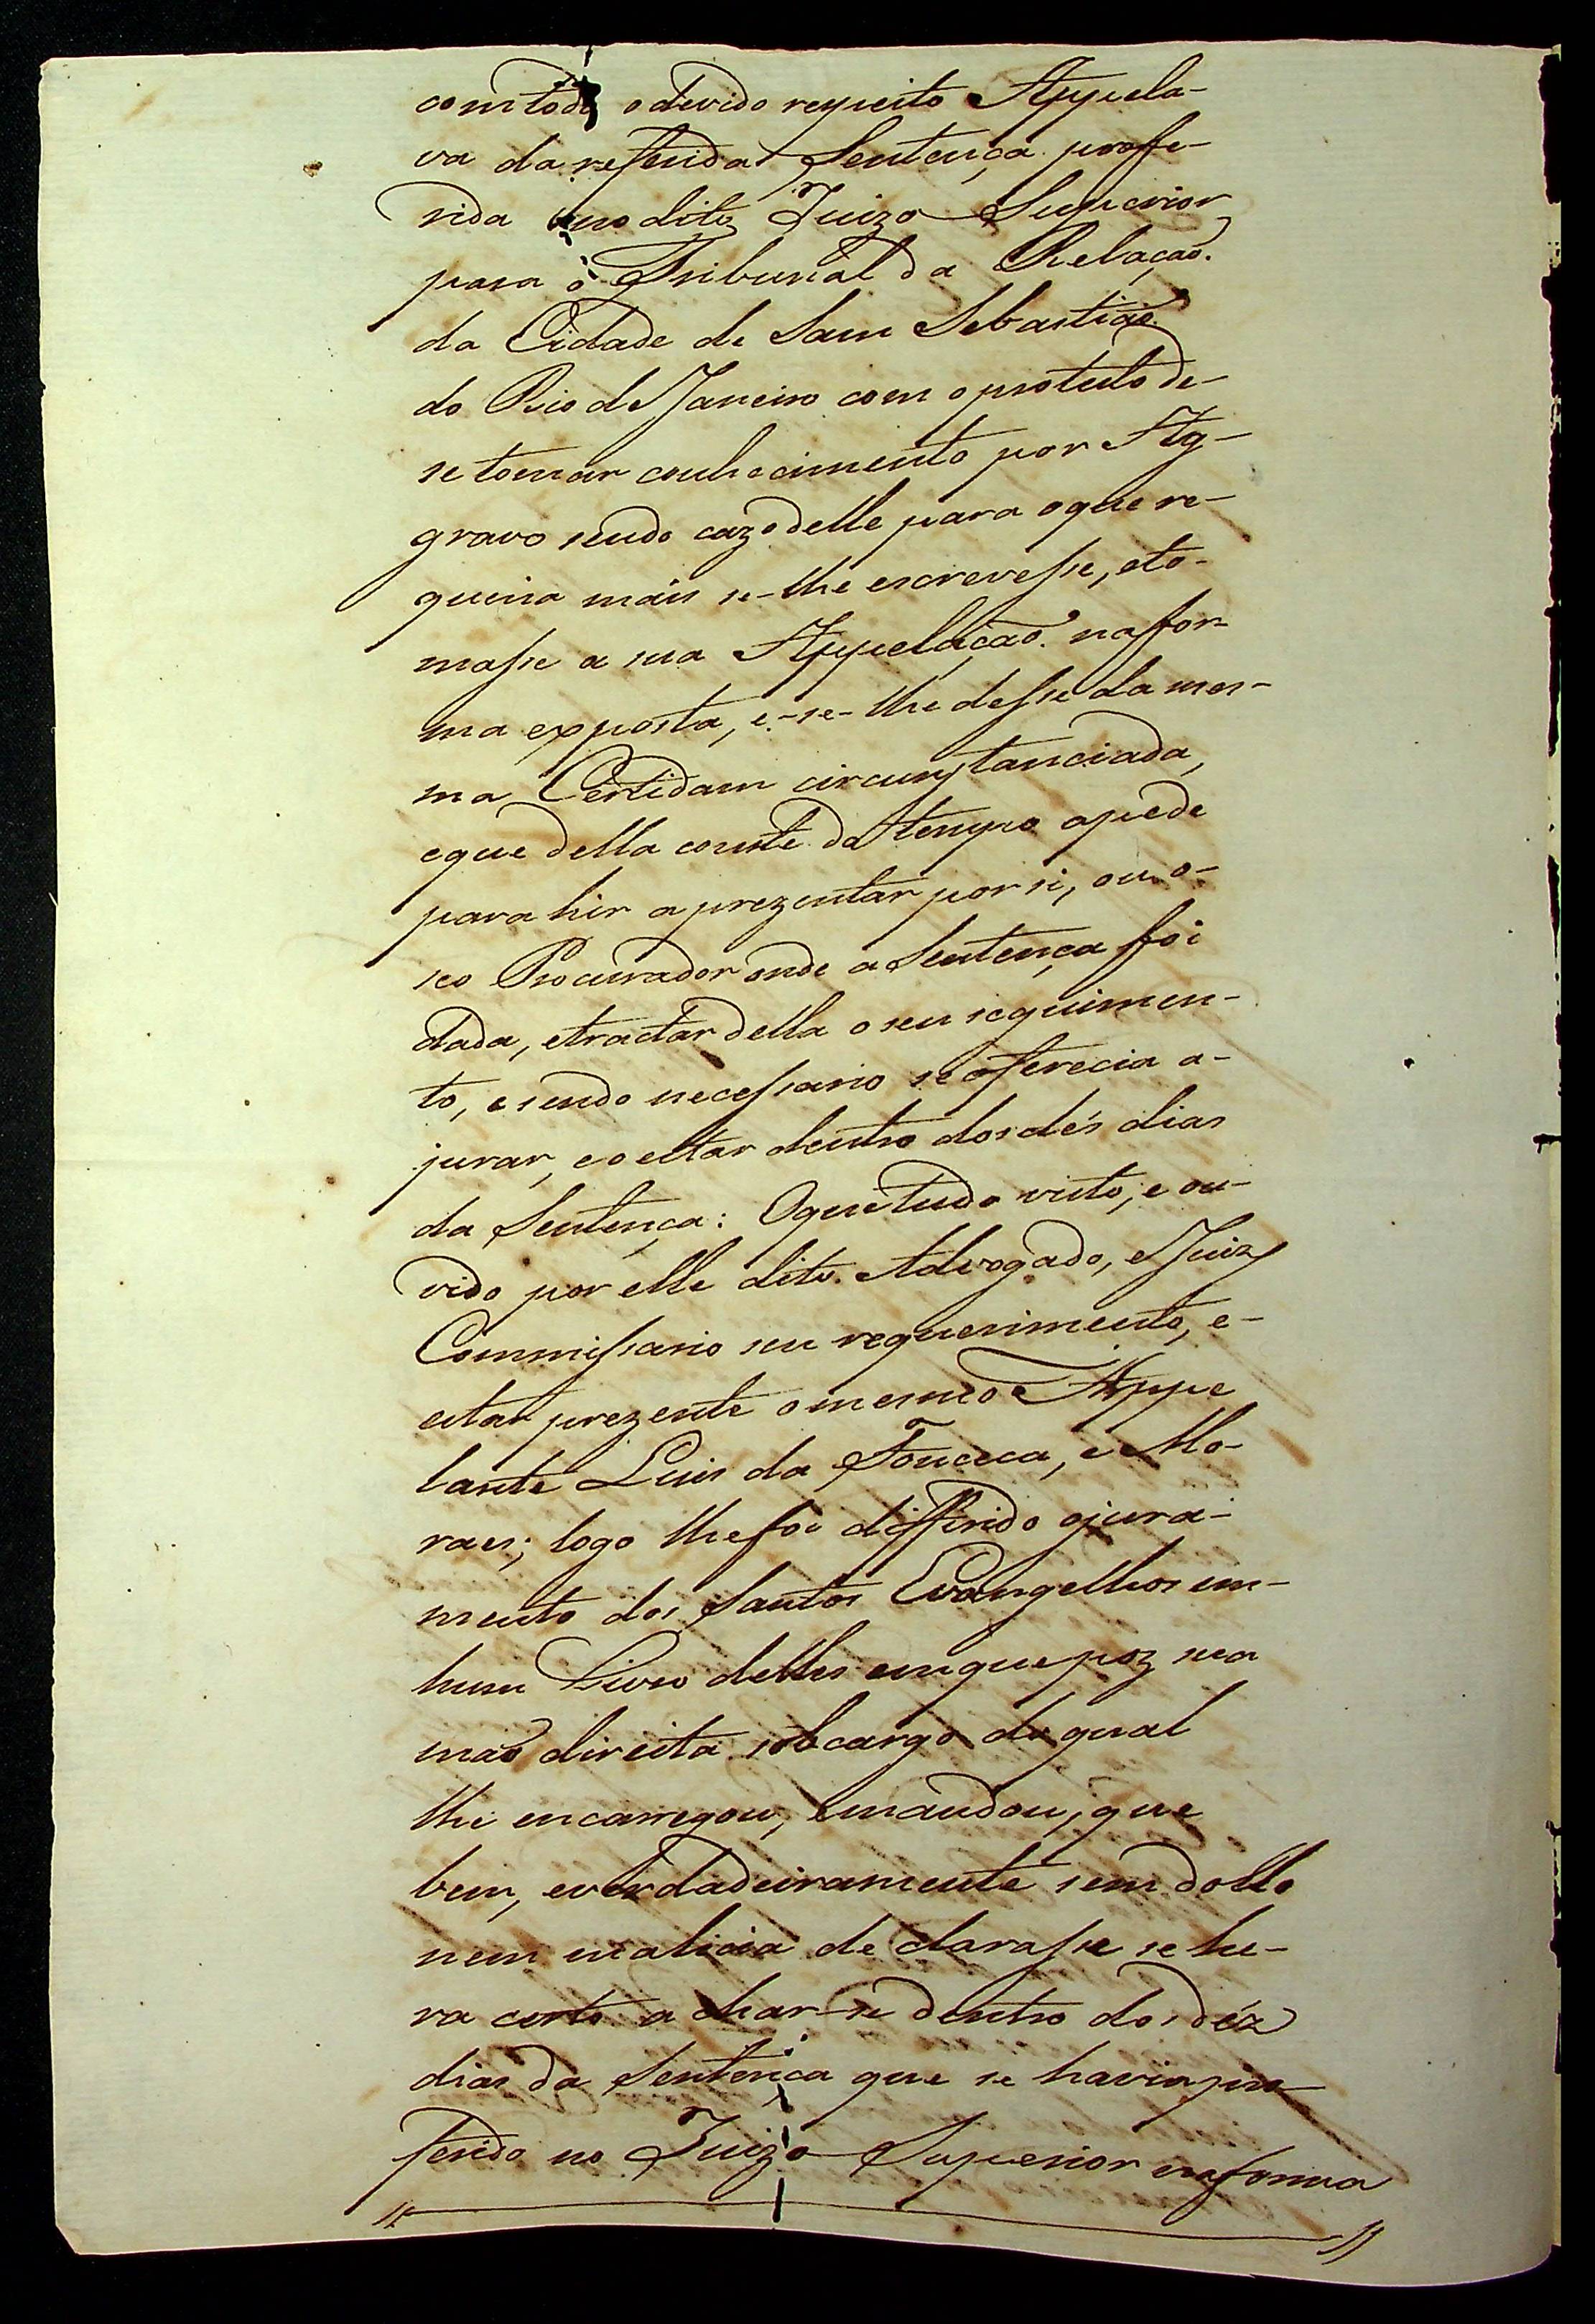 com todo o devido respeito Appela-
va da referida Sentença profe-
rida no dito Juizo Superior
para o Tribunal da Relação.
da Cidade de Sam Sebastião
do Rio de Janeiro com o protesto de-
se tomar conhecimento por Ag-
gravo sendo cazo delle para o que re-
queria mais se-lhe escrevesse, e to-
masse a sua Appelação. na for-
ma exposta, e-se-lhe desse da mes-
ma Certidam circunstanciada,
e que della conste do tempo a pede
para hir aprezentar por si, ou o-
seo Procurador onde a Sentença foi
dada, e tractar della o seu seguimen-
to, e sendo necessario se oferecia a-
jurar, e o estar dentro dos dés dias
da Sentença: O que tudo visto, e ou-
vido por elle dito. Advogado, e Juiz
Commissario seu requerimento, e-
estar prezente o mesmo Appe
lante Luis da Fonceca, e Mo-
raes; logo lhe foi differido o jura-
mento dos Santos Evangelhos em-
hum Livro delles em que poz sua
mão direita sob cargo do qual
lhe encarregou, e mandou, que
bem, e verdadeiramente sem dollo
nem malicia declarasse se hu-
ra certo achar-se dentro dos déz
dias da Sentença que se havia pro-
ferido no Juizo Superior na forma